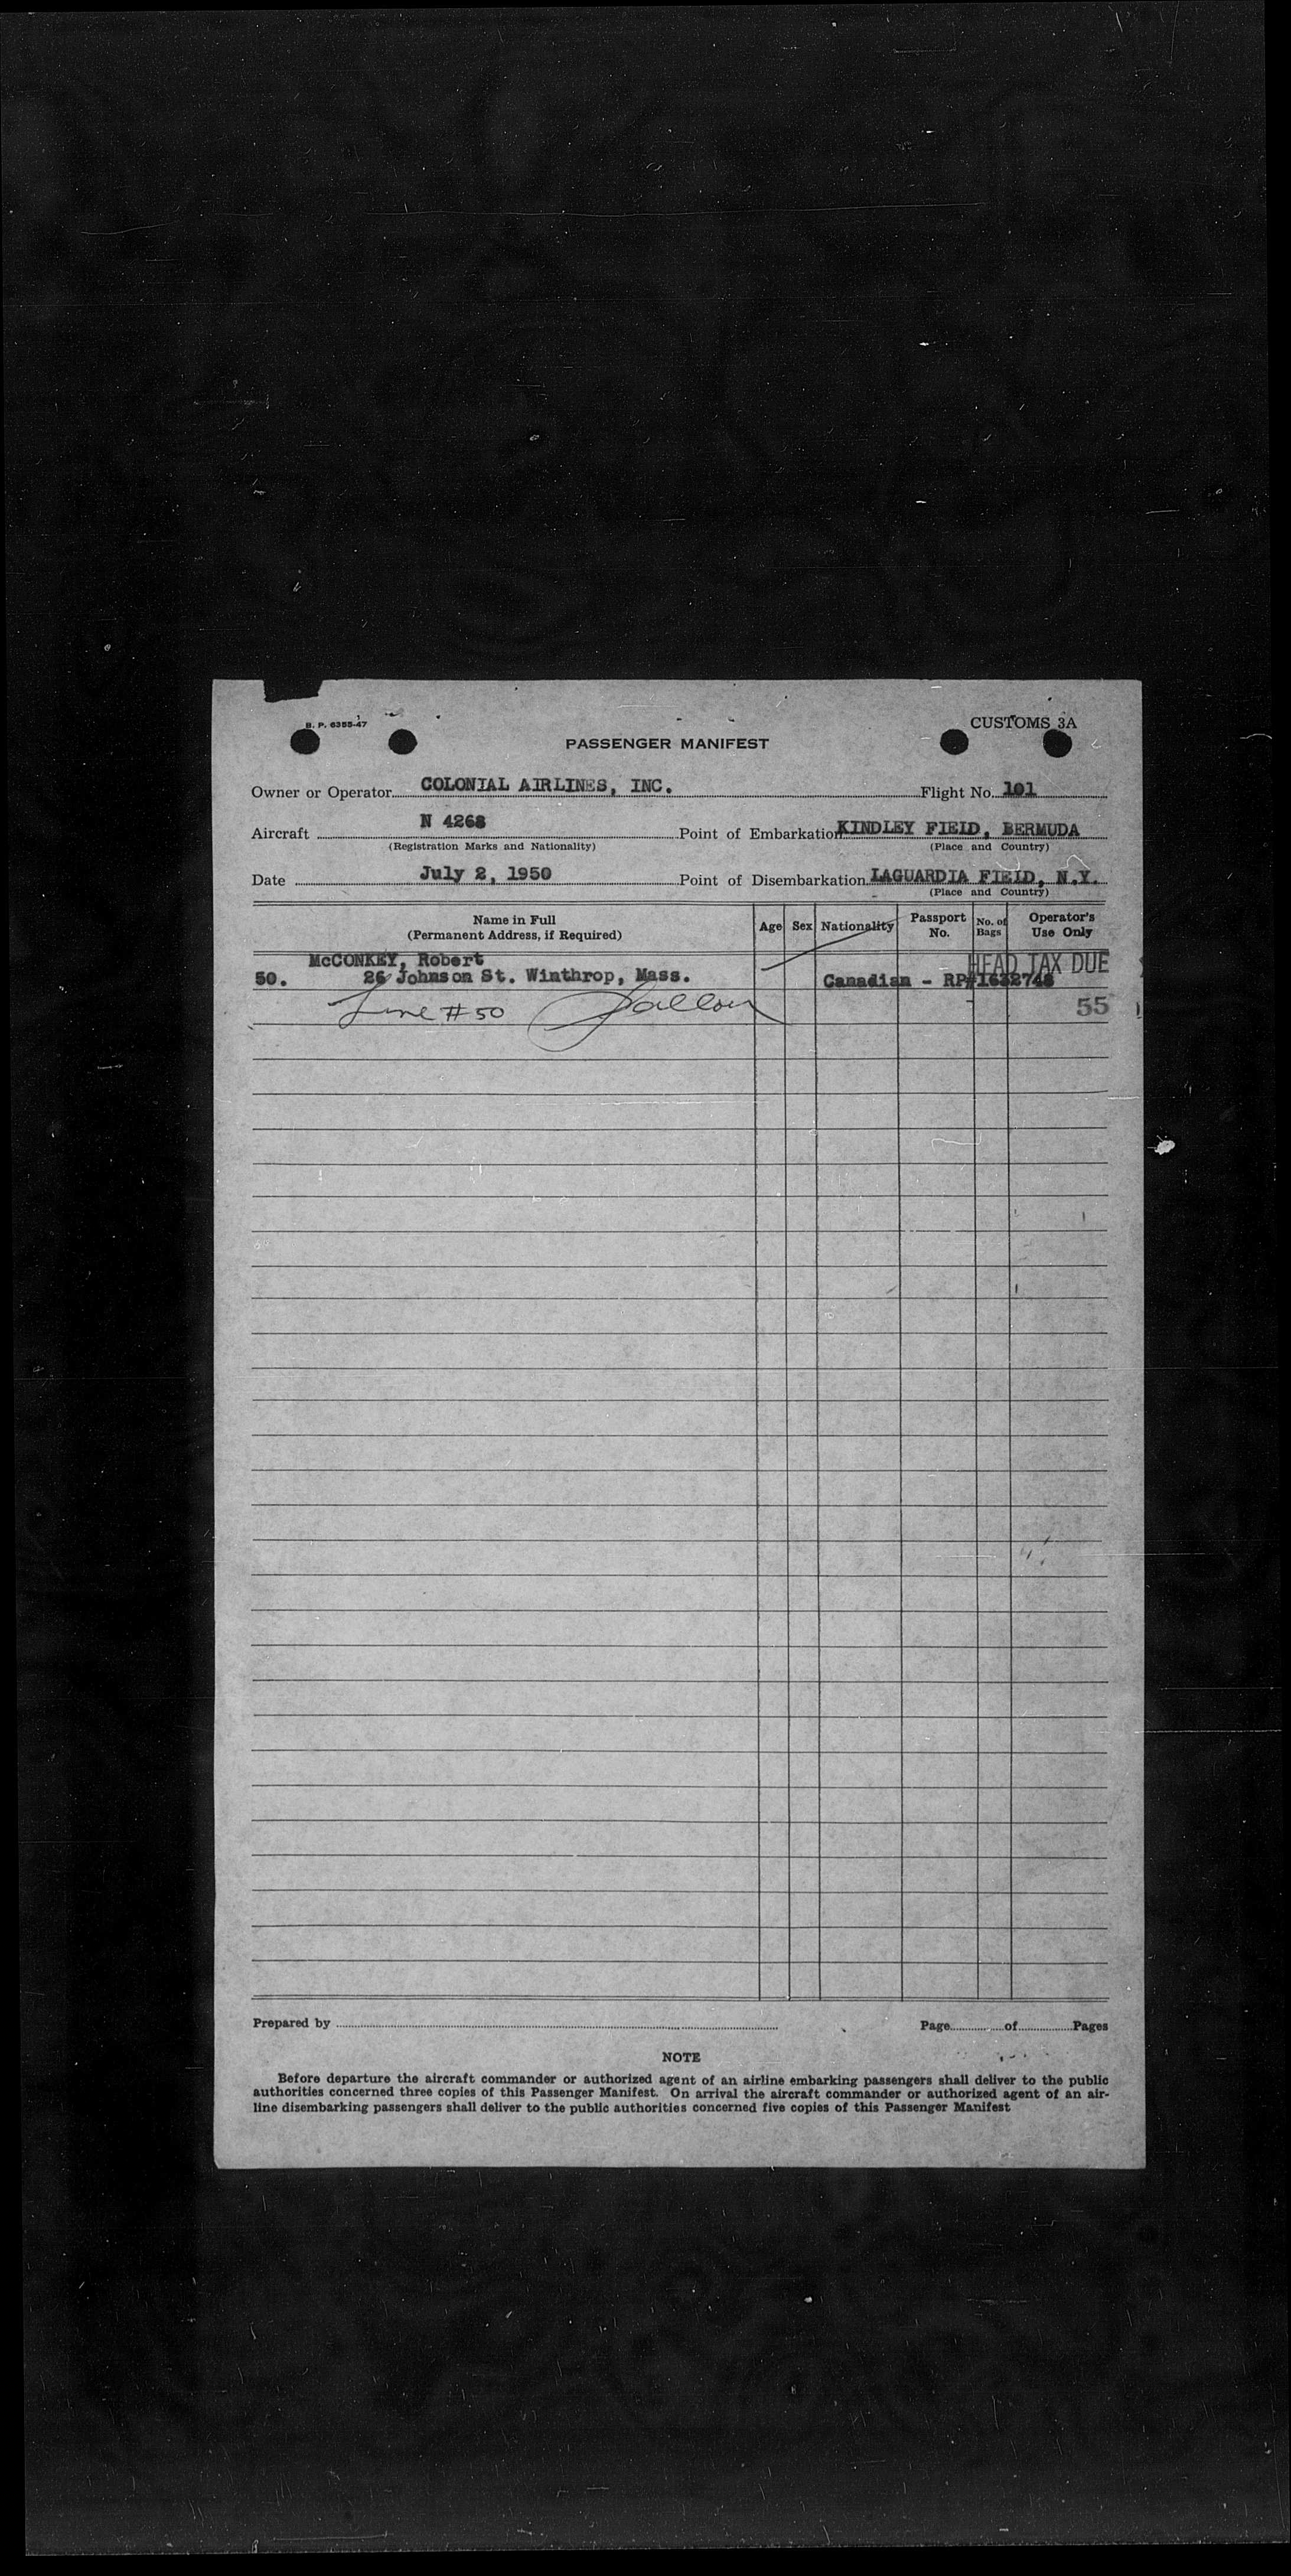 B. P. 6355-47
CUSTOMS 3A
PASSENGER MANIFEST
Owner or Operator COLONIAL AIRLINES, INC. Flight No. 101
Aircraft N 4268 Point of Embarkation KINDLEY FIELD, BERMUDA
(Registration Marks and Nationality) (Place and Country)
Date July 2, 1950 Point of Disembarkation LAGUARDIA FIELD, N.Y.
(Place and Country)
Name in Full
(Permanent Address, if Required)
Age Sex Nationality Passport No. No. of Bags Operator's Use Only
McCONKEY, Robert
HEAD TAX DUE
50. 26 Johnson St. Winthrop, Mass. Canadian - RP#1632748
Line #50
55
Prepared by Page of Pages
NOTE
Before departure the aircraft commander or authorized agent of an airline embarking passengers shall deliver to the public
authorities concerned three copies of this Passenger Manifest. On arrival the aircraft commander or authorized agent of an air-
line disembarking passengers shall deliver to the public authorities concerned five copies of this Passenger Manifest